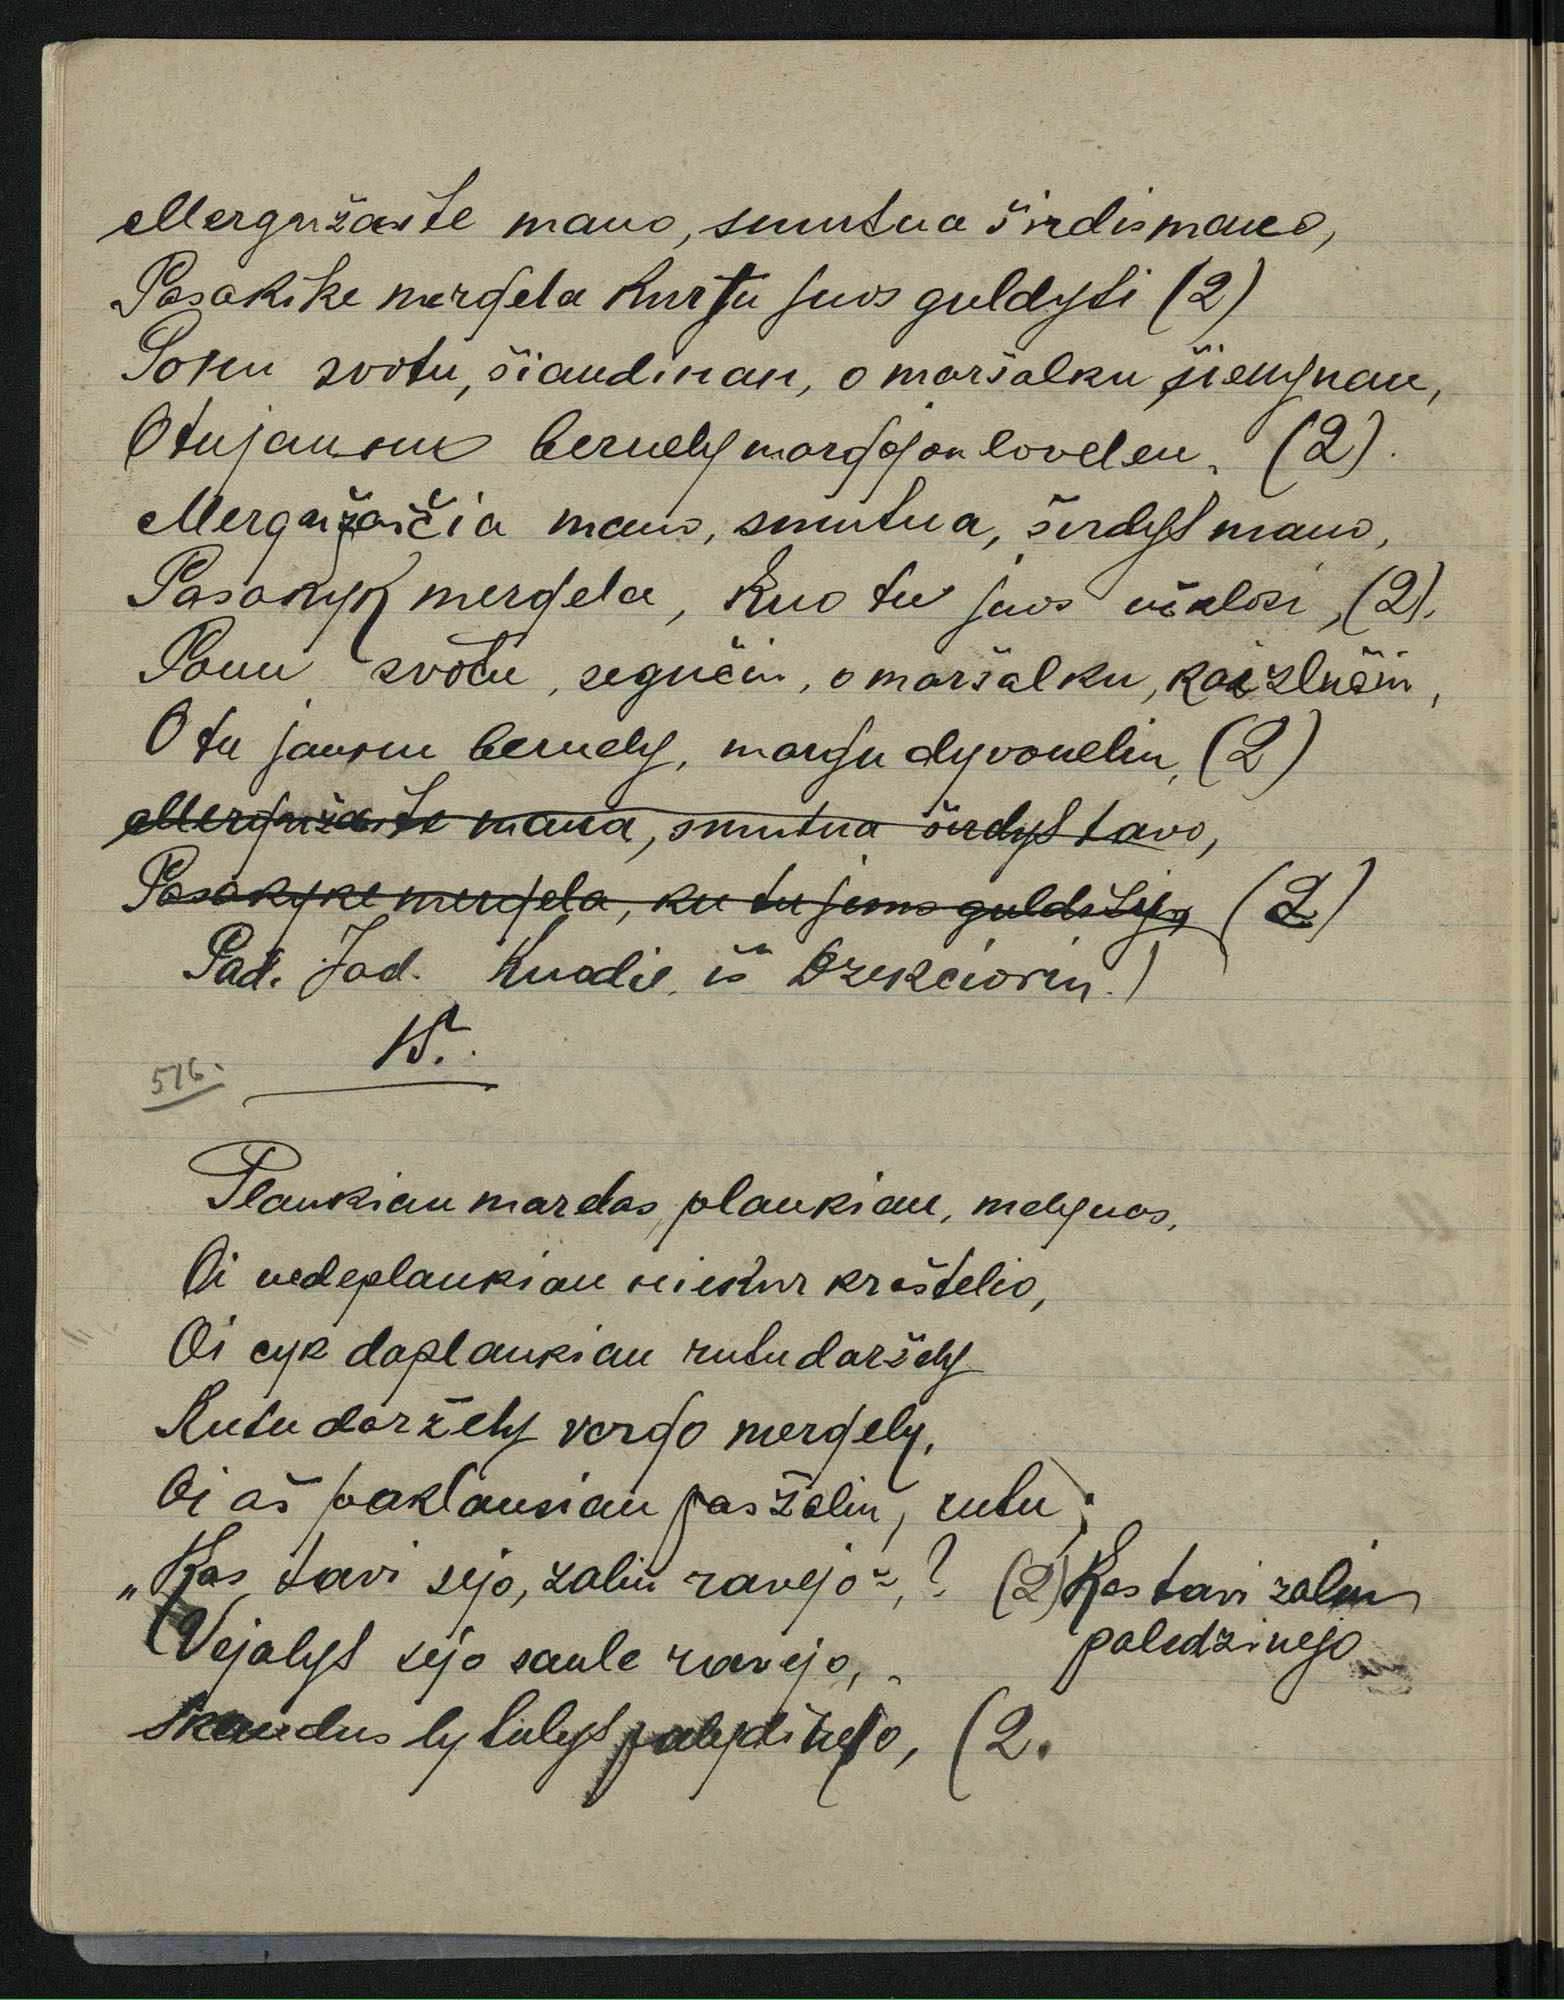 Mergužaite mano, smutna širdis mano,
Pasakike mergela kur tu juos guldysi (2)
Ponu svotu, šiaudinan, o maršalku šienynan,
O tu jaunu bernely margojon lovelen, (2).
Mergužaičia mano, smutna, širdys mano,
Pasakyk mergela, kuo tu juos užklosi, (2).
Ponu svotu, segučiu, o maršalku, kaizlučiu,
O tu jaunu bernely, margu dyvoneliu, (2)
Mergužaite mana, smutna širdys tavo,
Pasakyke mergela, ku tu jiems guldisi, (2)
Pad. Jad. Kuodie, iš Dzekciorių.)
15.
516.
Plaukiau mardas plaukiau, melynas,
Oi nedeplaukiau niekur kraštelio,
Oi cyk daplaukiau rutu daržely
Rutu daržely vargo mergely,
Oi aš paklausiau pas žaliu, rutu;
„Kas tavi sėjo, zaliu ravėjo", ? (2) Kas tavi zaliu
paledzinejo
Vejalys sėjo saule ravėjo,
skaudus lytulys palydinėjo, (2.